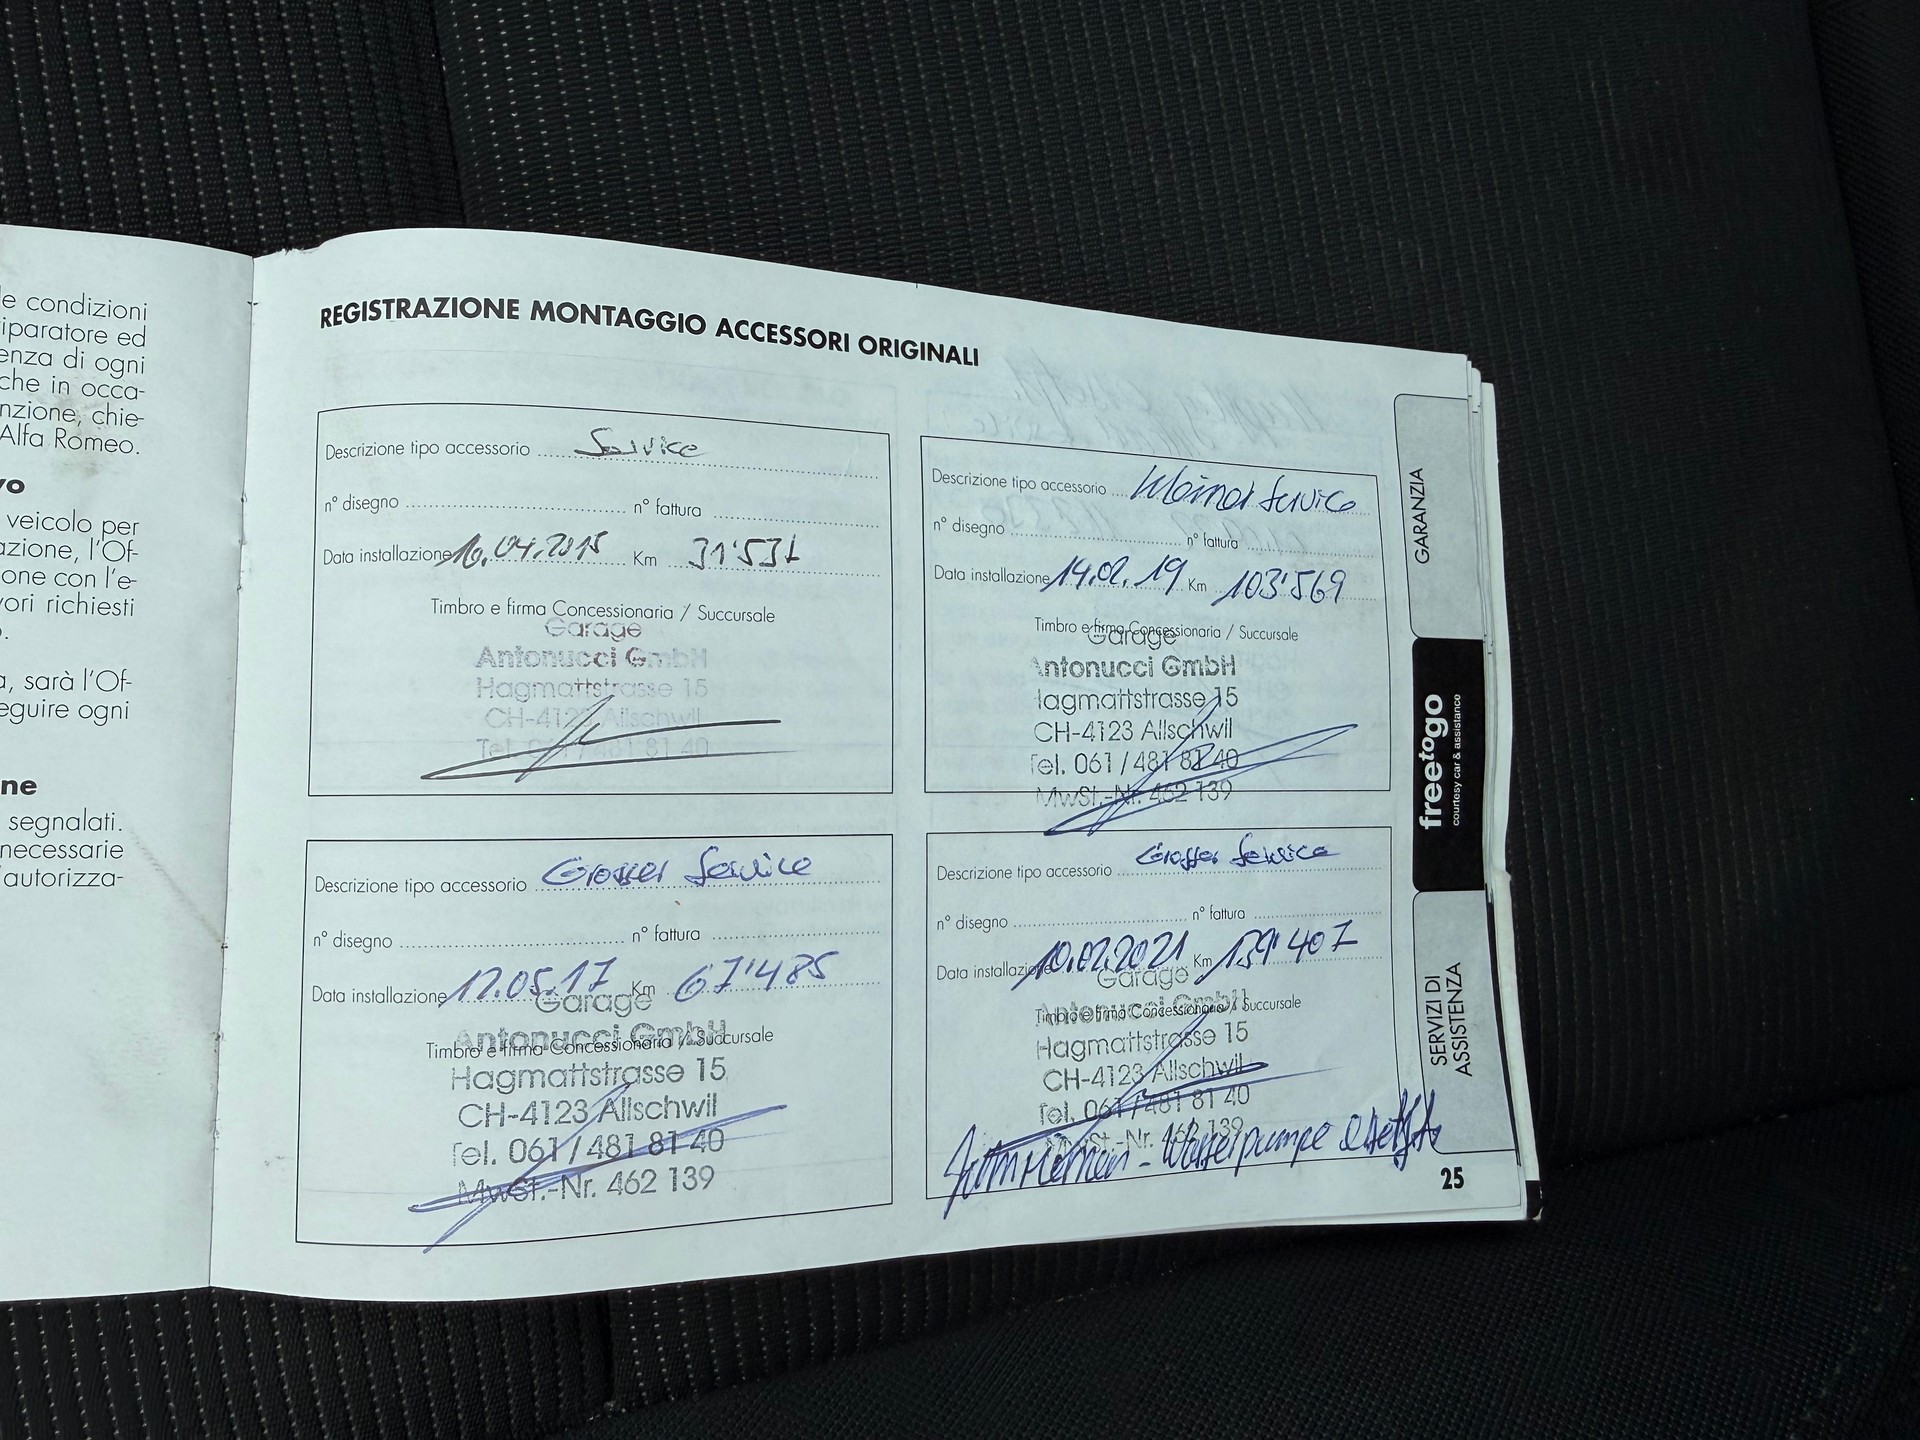 le condizioni
iparatore ed
enza di ogni
che in occa-
nzione, chie-
Alfa Romeo.
vo
veicolo per
azione, l'Of-
one con l'e-
vori richiesti
o.
a, sarà l'Of-
eguire ogni
ne
segnalati.
necessarie
'autorizza-
REGISTRAZIONE MONTAGGIO ACCESSORI ORIGINALI
Descrizione tipo accessorio Service
n° disegno n° fattura
Data installazione 16.04.2015 Km 31'531
Timbro e firma Concessionaria / Succursale
Garage
Antonucci GmbH
Hagmattstrasse 15
CH-4123 Allschwil
Tel. 061/481 81 40
Descrizione tipo accessorio Kleiner Service
n° disegno n° fattura
Data installazione 14.02.19 Km 103'569
Timbro e firma Concessionaria / Succursale
Garage
Antonucci GmbH
Hagmattstrasse 15
CH-4123 Allschwil
Tel. 061/481 81 40
MwSt.-Nr. 462 139
Descrizione tipo accessorio Grosser Service
n° disegno n° fattura
Data installazione 12.05.17 Km 67'485
Garage
Antonucci GmbH
Timbro e firma Concessionaria / Succursale
Hagmattstrasse 15
CH-4123 Allschwil
Tel. 061/481 81 40
MwSt.-Nr. 462 139
Descrizione tipo accessorio Grosser Service
n° disegno n° fattura
Data installazione 10.02.2021 Km 159'407
Garage
Antonucci GmbH
Timbro e firma Concessionaria / Succursale
Hagmattstrasse 15
CH-4123 Allschwil
Tel. 061/481 81 40
MwSt.-Nr. 462 139
Zahnriemen - Wasserpumpe ersetzt
GARANZIA
freetogo
courtesy car & assistance
SERVIZI DI
ASSISTENZA
25